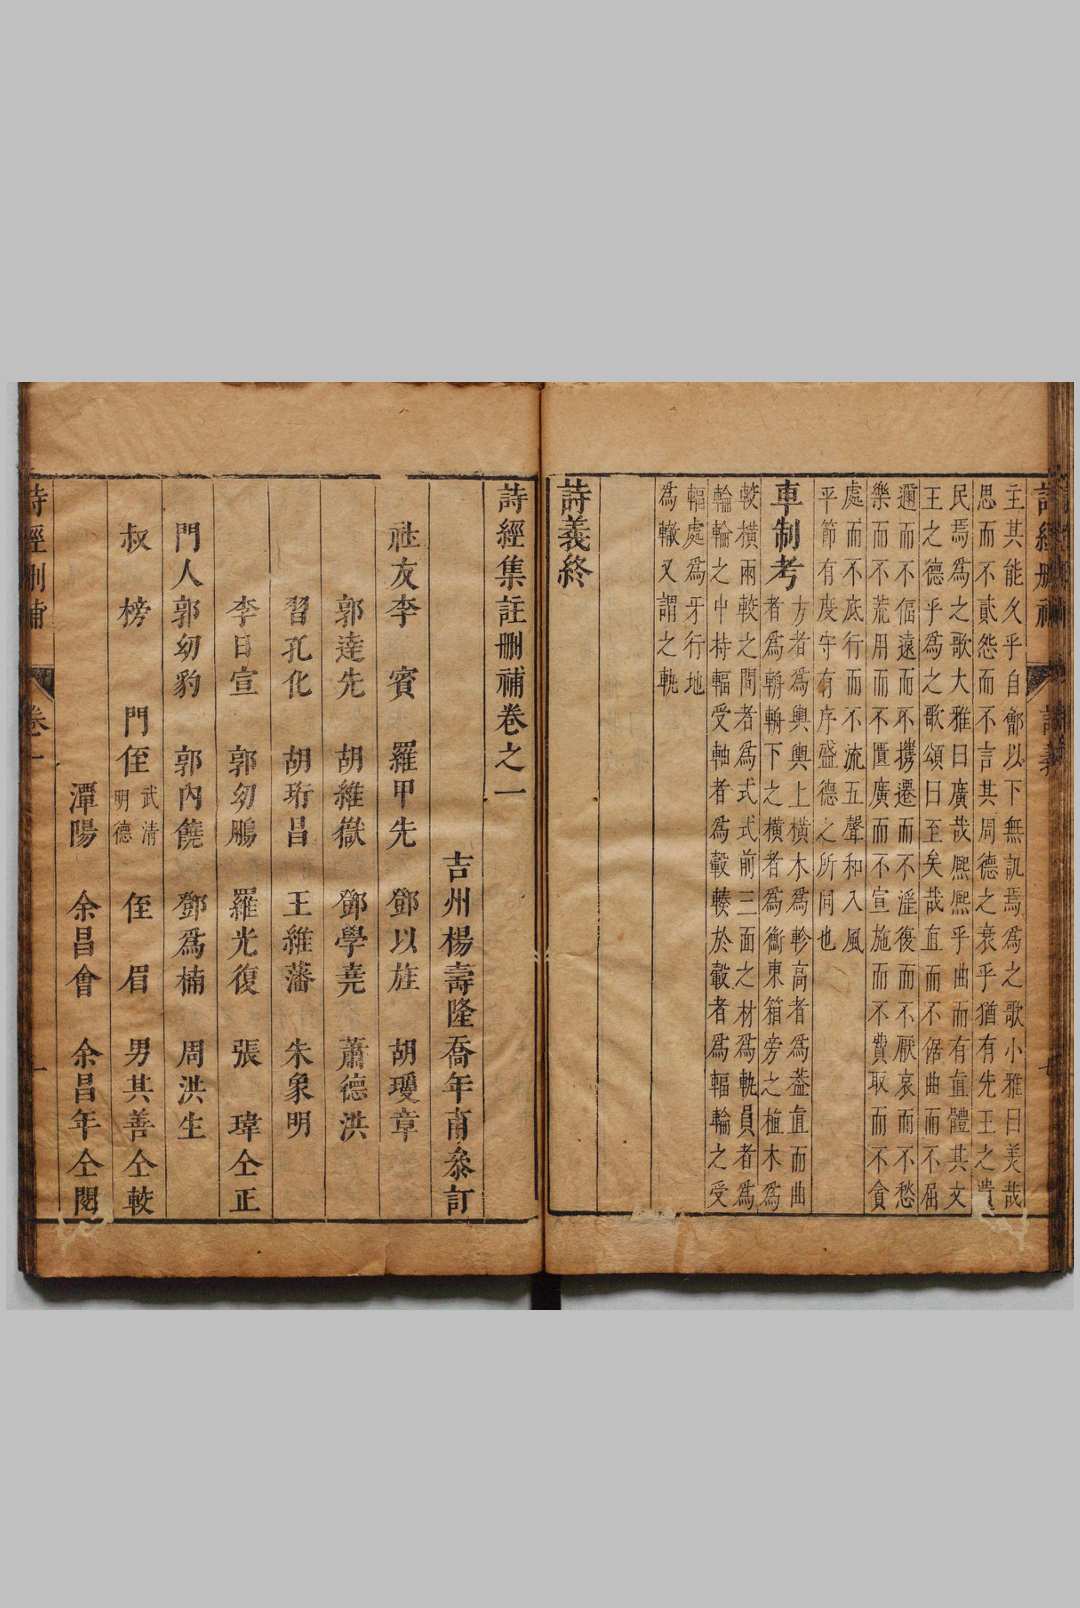 詩經刪補
詩義
主其能久乎自鄶以下無譏焉爲之歌小雅曰美哉
思而不貳怨而不言其周德之衰乎猶有先王之遺
民焉爲之歌大雅曰廣哉熈熈乎曲而有直體其文
王之德乎爲之歌頌曰至矣哉直而不倨曲而不屈
邇而不偪遠而不攜遷而不淫復而不厭哀而不愁
樂而不荒用而不匱廣而不宣施而不費取而不貪
處而不底行而不流五聲和入風
平節有度守有序盛德之所同也
車制考
方者爲輿輿上橫木爲軫高者爲蓋直而曲
者爲輈輈下之橫者爲衡東箱旁之植木爲
較橫兩較之間者爲式式前三面之材爲軌員者爲
輪輪之中持輻受軸者爲轂輳於轂者爲輻輪之受
輻處爲牙行地
爲轍又謂之軌
詩義終
詩經集註刪補卷之一
吉州楊壽隆喬年甫叅訂
社友李賓 羅甲先 鄧以旌 胡瓊章
郭達先 胡維嶽 鄧學堯 蕭德洪
習孔化 胡珩昌 王維藩 朱象明
李日宣 郭幼鵬 羅光復 張瑋仝正
門人郭幼豹 郭內饒 鄧爲楠 周洪生
叔榜 門侄武清 明德 侄眉 男其善仝較
潭陽 余昌會 余昌年仝閱
詩經刪補
卷一
一